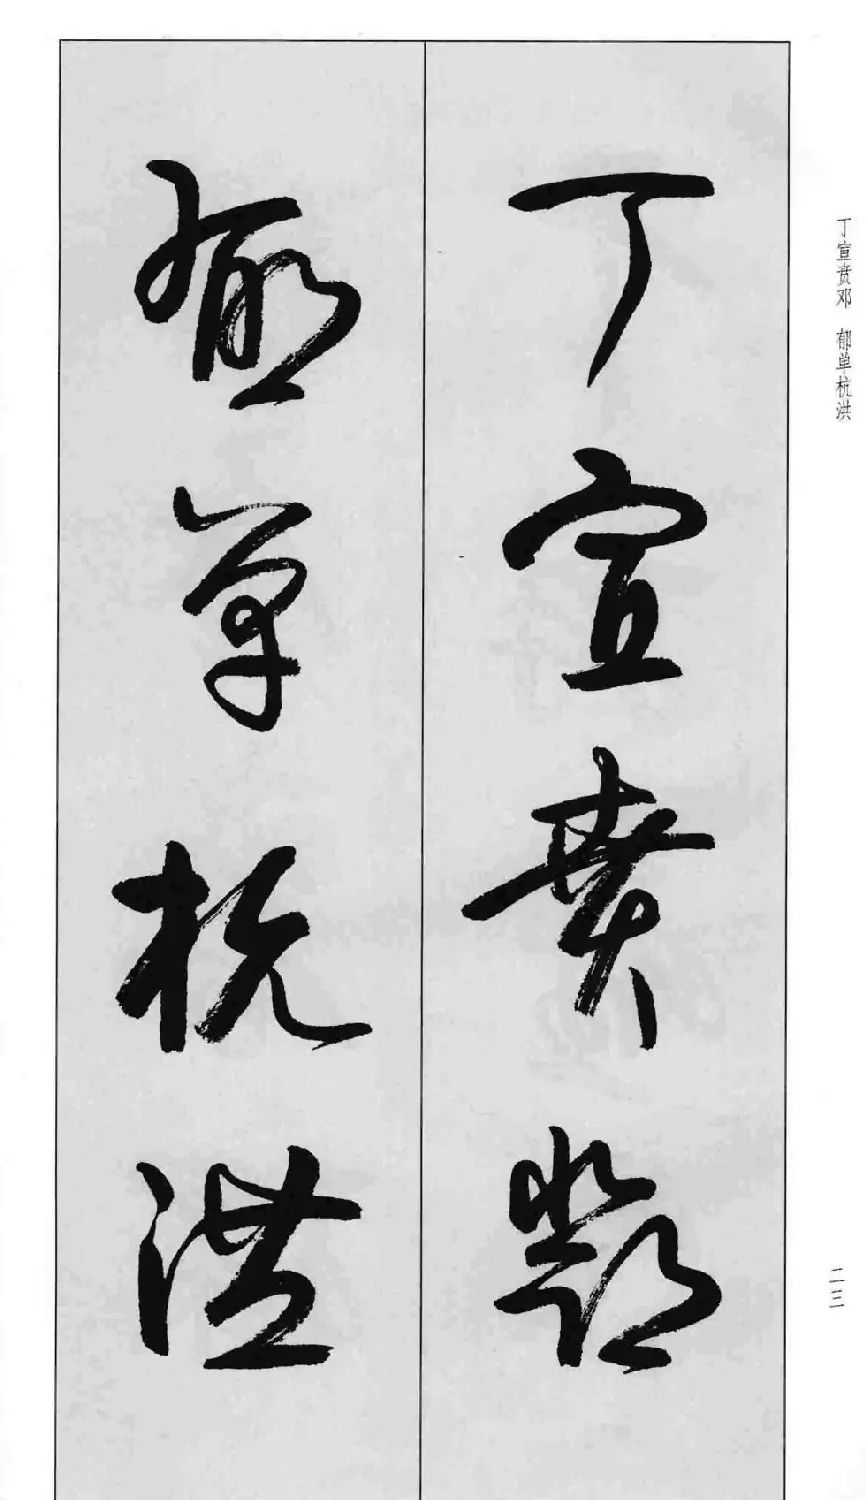 丁宣贲邓 郁单杭洪
丁宣賁鄧
郁單杭洪
二三